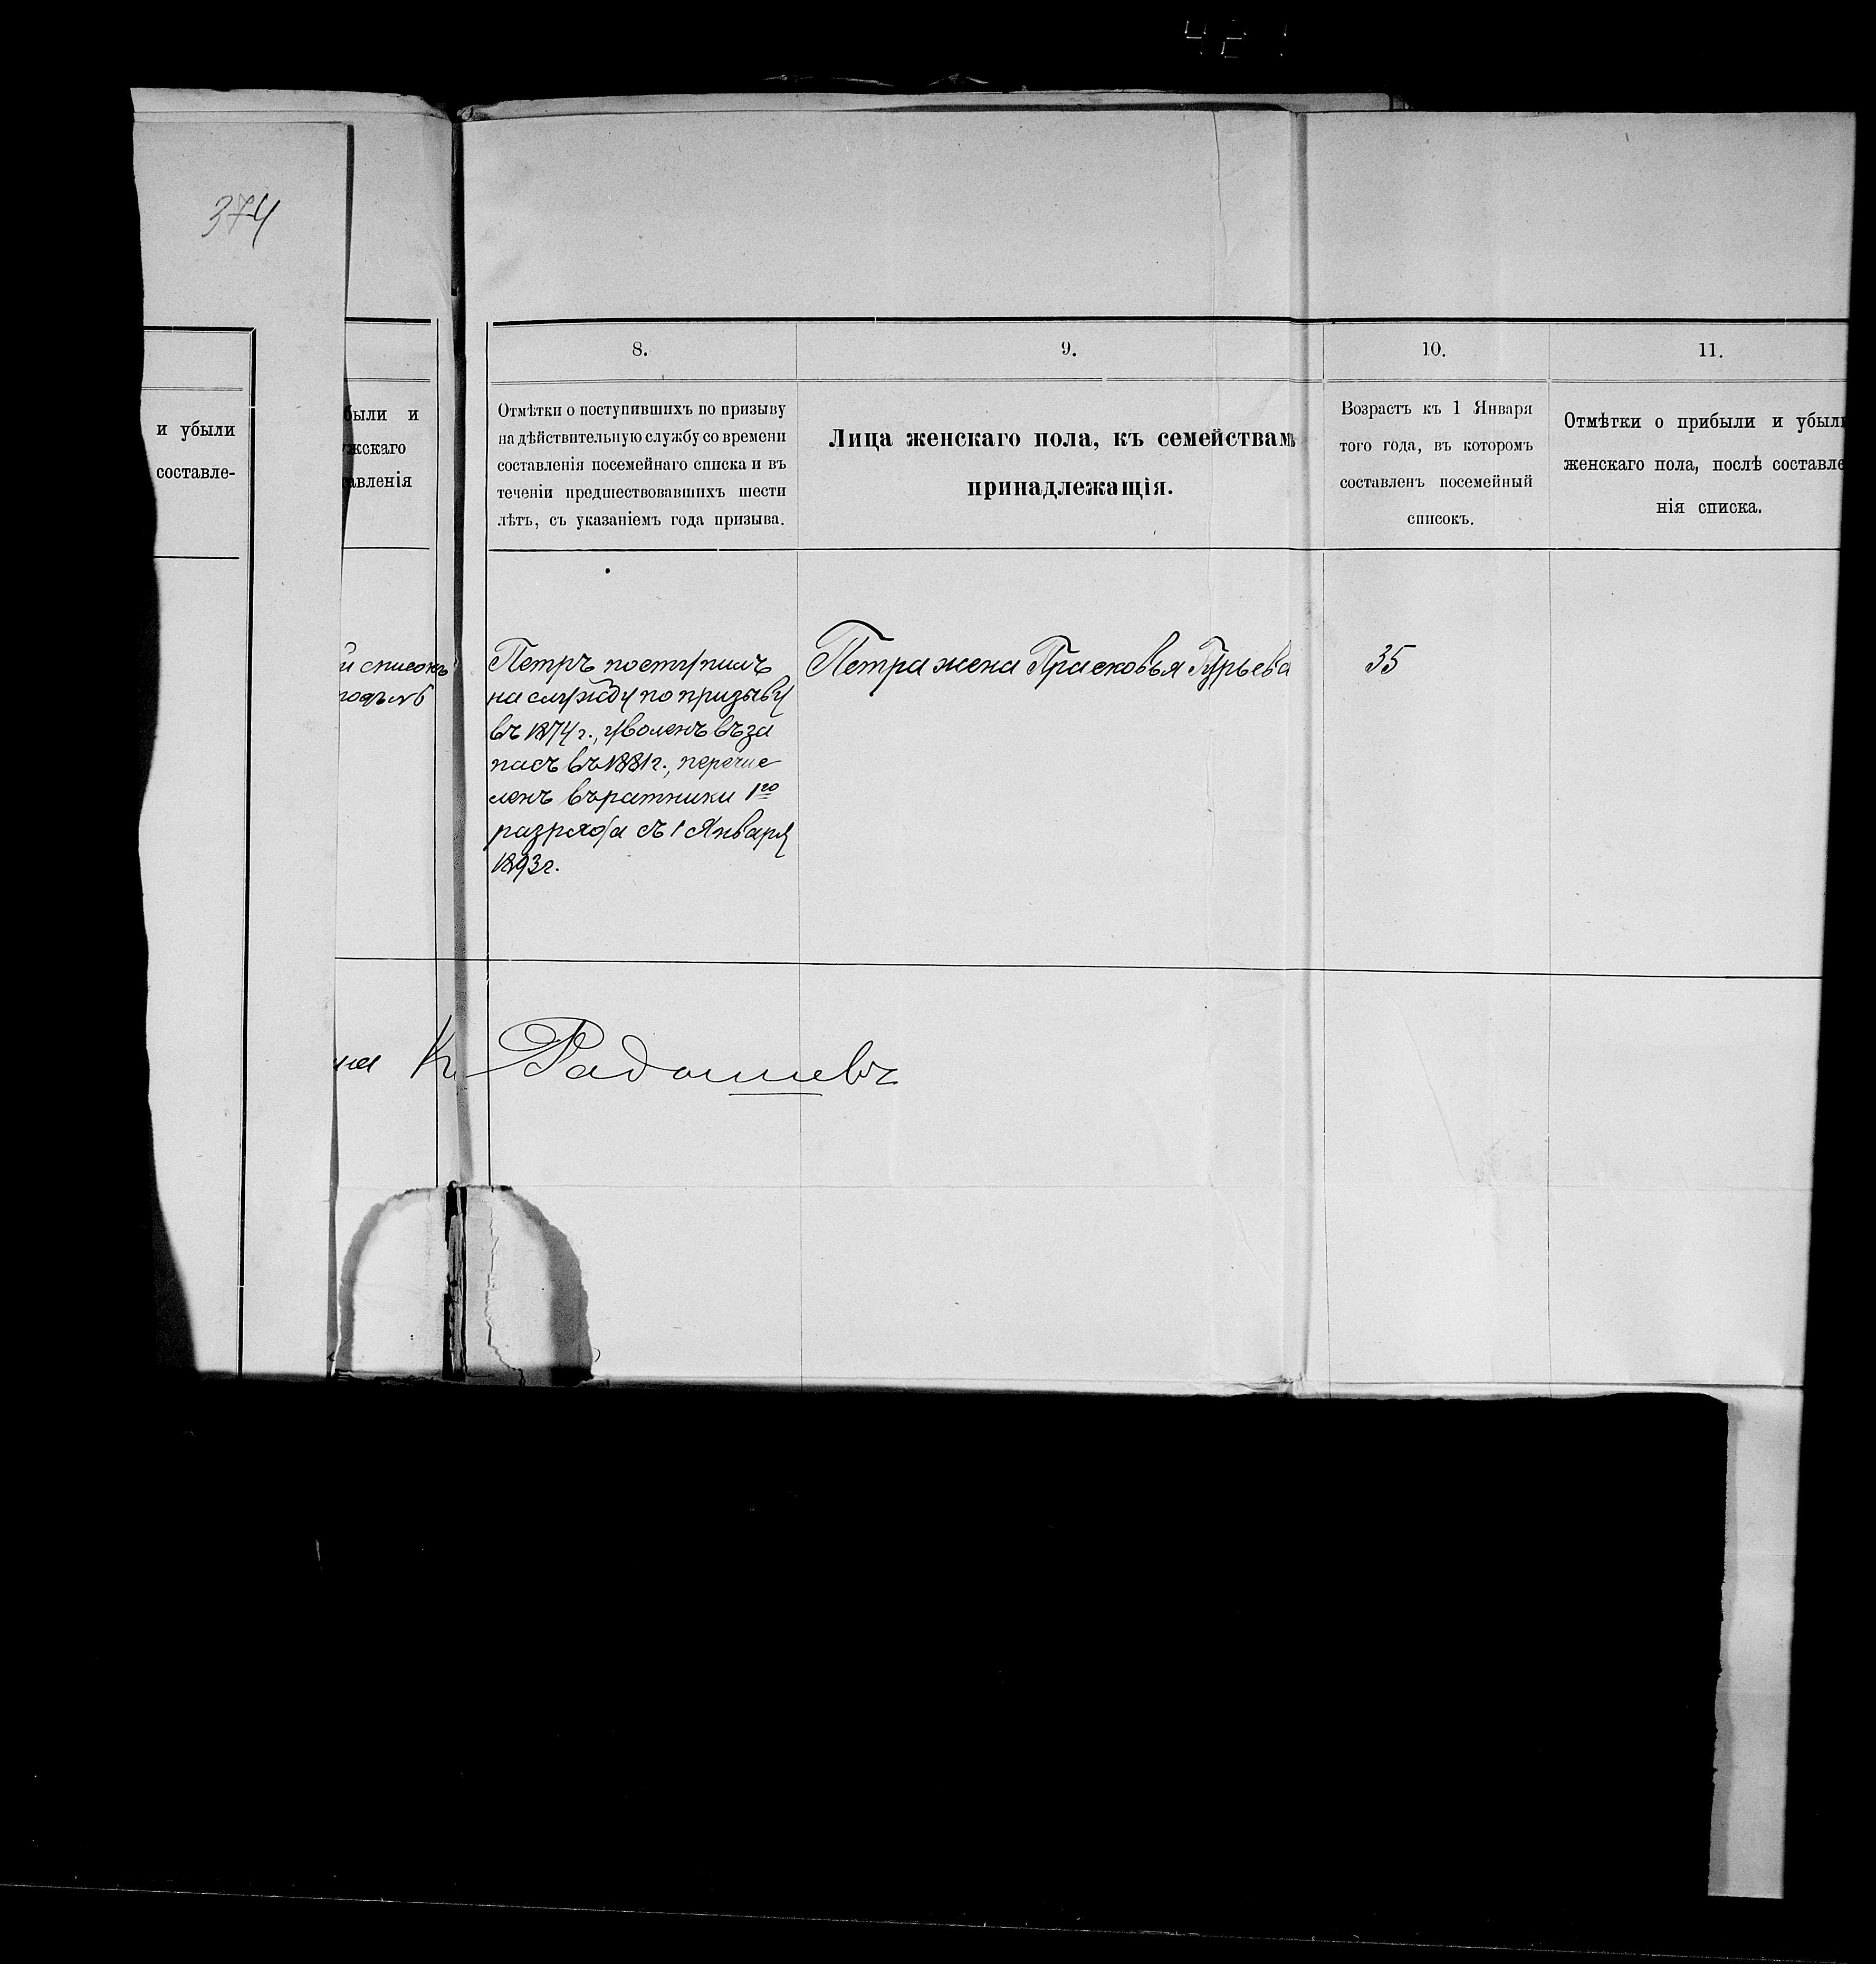 374
и убыли
составле-
были и
жскаго
авленія
й списокъ
8.
9.
10.
11.
Отмѣтки о поступившихъ по призыву
на дѣйствительную службу со времени
составленія посемейнаго списка и въ
теченіи предшествовавшихъ шести
лѣтъ, съ указаніемъ года призыва.
Лица женскаго пола, къ семействамъ
принадлежащія.
Возрастъ къ 1 Января
того года, въ которомъ
составленъ посемейный
списокъ.
Отмѣтки о прибыли и убыли
женскаго пола, послѣ составле
нія списка.
Петръ поступилъ
на службу по призыву
въ 1874 г., уволенъ въ за
пасъ въ 1881 г., перечис
ленъ въ ратники 1го
разряда съ 1 Января
1893 г.
Петра жена Прасковья Гурьева
35